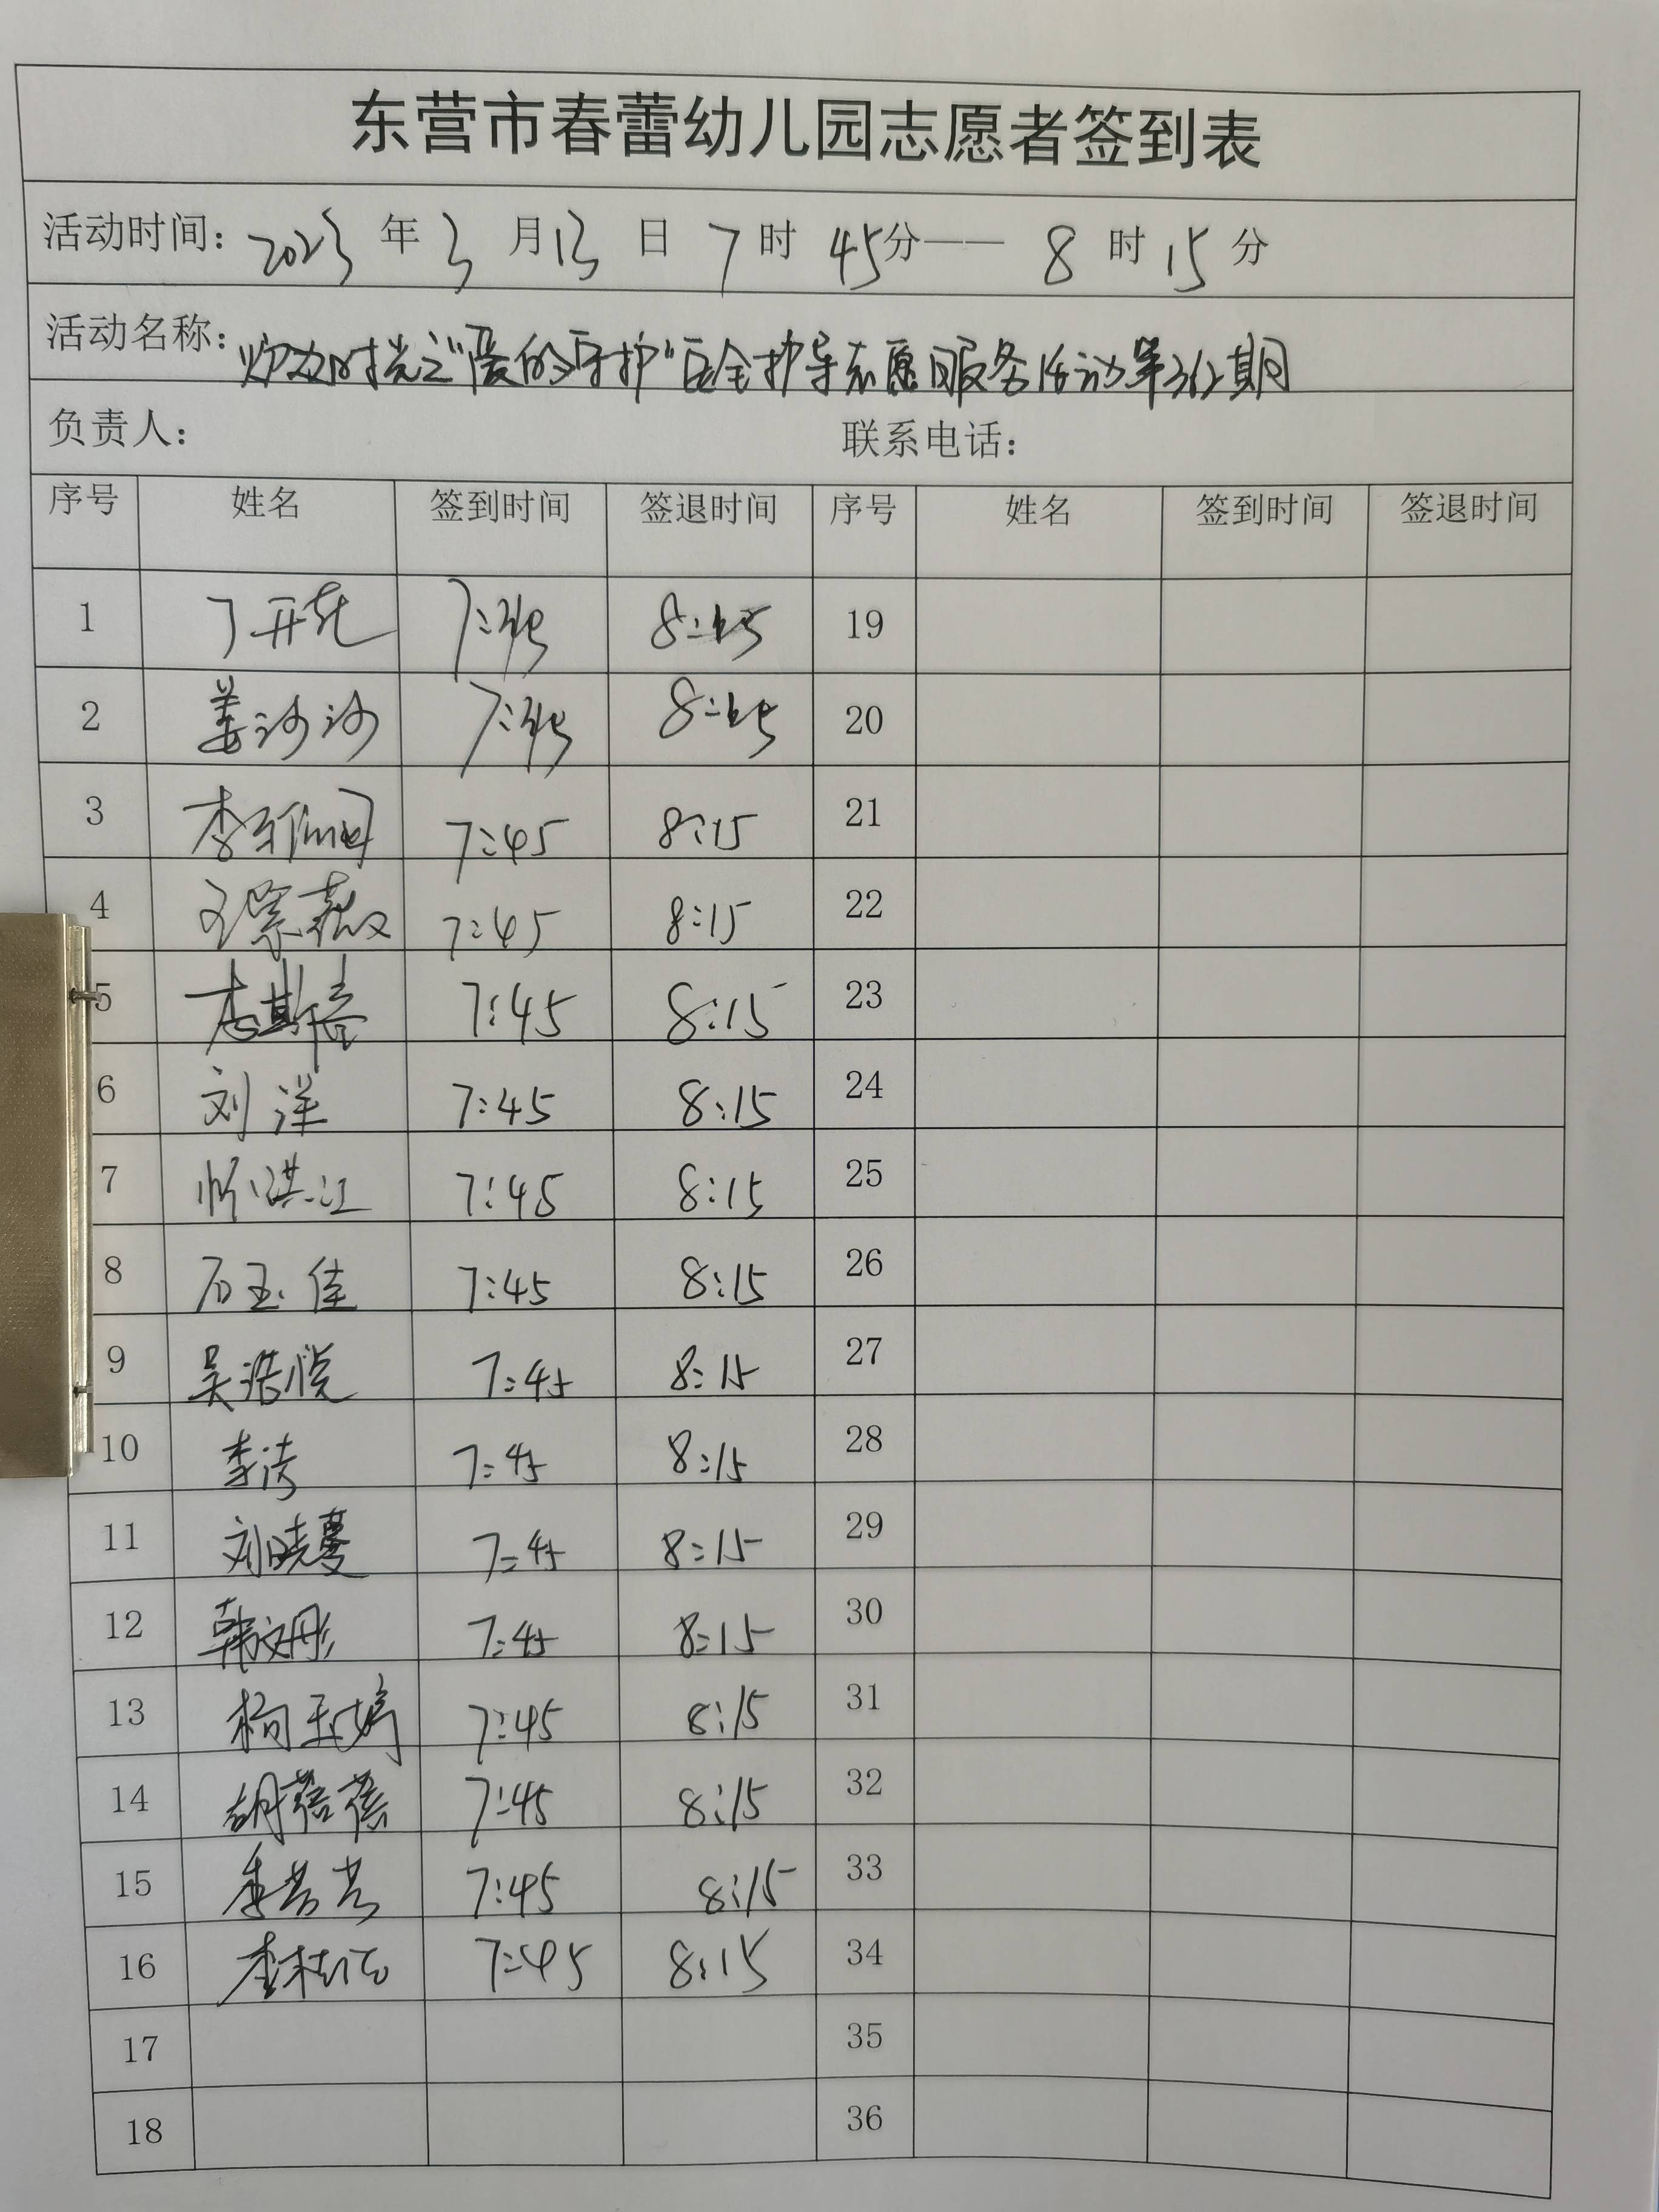 东营市春蕾幼儿园志愿者签到表
活动时间: 2023 年 3 月 13 日 7 时 45分—— 8 时 15 分
活动名称: 时光之"爱的守护"安全护导志愿服务活动第312期
负责人: 联系电话:
序号 姓名 签到时间 签退时间 序号 姓名 签到时间 签退时间
1 丁 7: 8: 19
2 姜沙沙 7: 8: 20
3 李 7:45 8:15 21
4 王紫薇 7:45 8:15 22
5 李斯 7:45 8:15 23
6 刘洋 7:45 8:15 24
7 洪江 7:45 8:15 25
8 石玉佳 7:45 8:15 26
9 吴浩悦 7:45 8:15 27
10 李涛 7:45 8:15 28
11 刘晓蔓 7:45 8:15 29
12 韩文彤 7:45 8:15 30
13 杨玉婷 7:45 8:15 31
14 胡蓓蓓 7:45 8:15 32
15 季芸芸 7:45 8:15 33
16 李桂 7:45 8:15 34
17 35
18 36